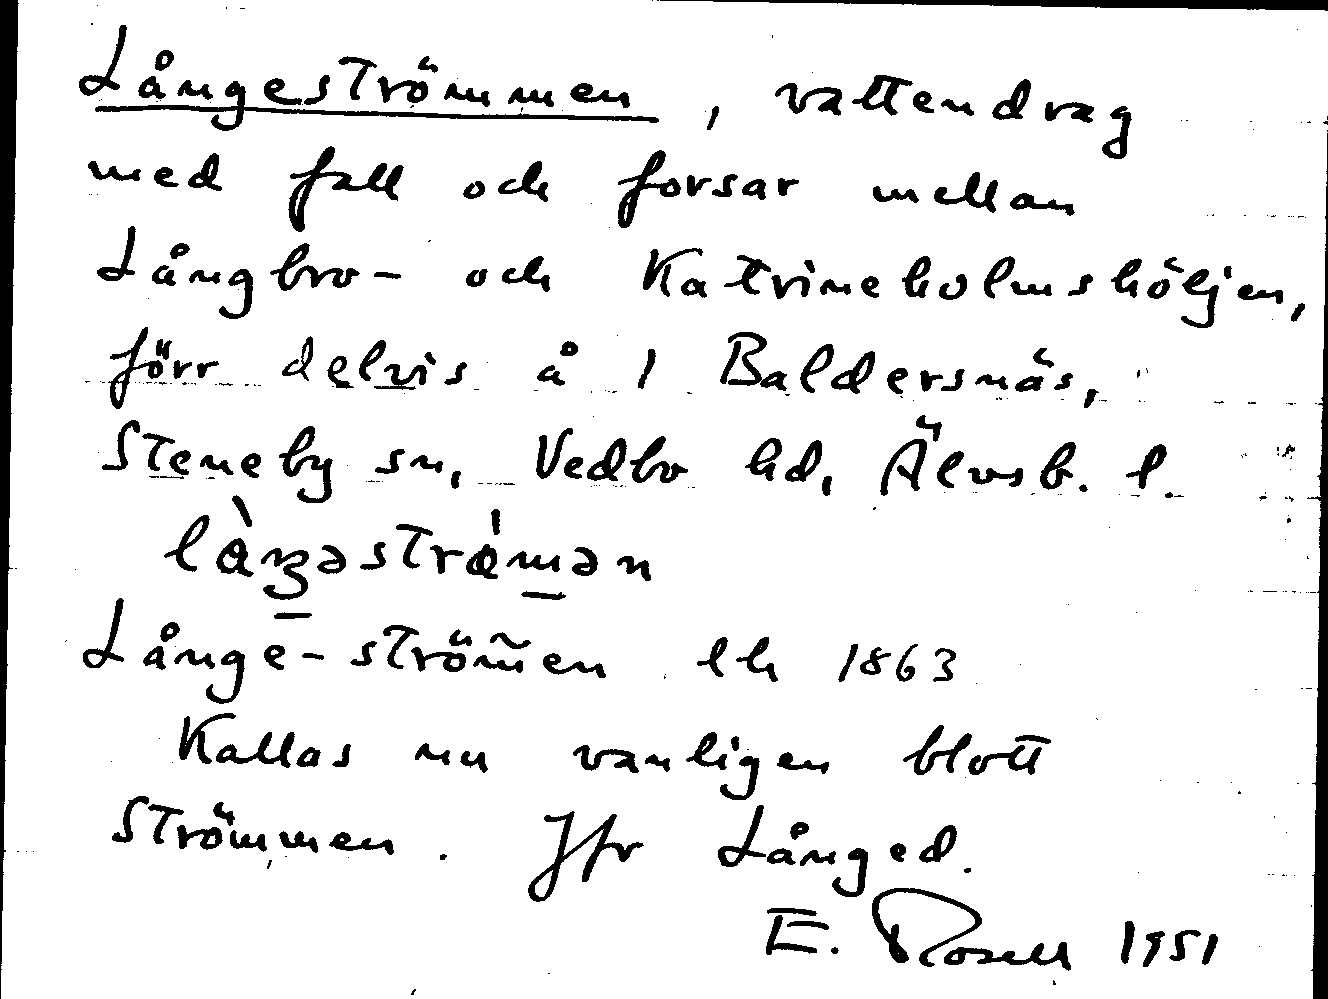 Långeströmmen, vattendrag
med fall och forsar mellan
Långbro- och Katrineholmshöljen,
förr delvis å 1 Baldersnäs,
Steneby sn, Vedbo hd, Älvsb. l.
Långe-ström̃en lk 1863
Kallas nu vanligen blott
Strömmen. Jfr Långed.
E. Rosell 1951